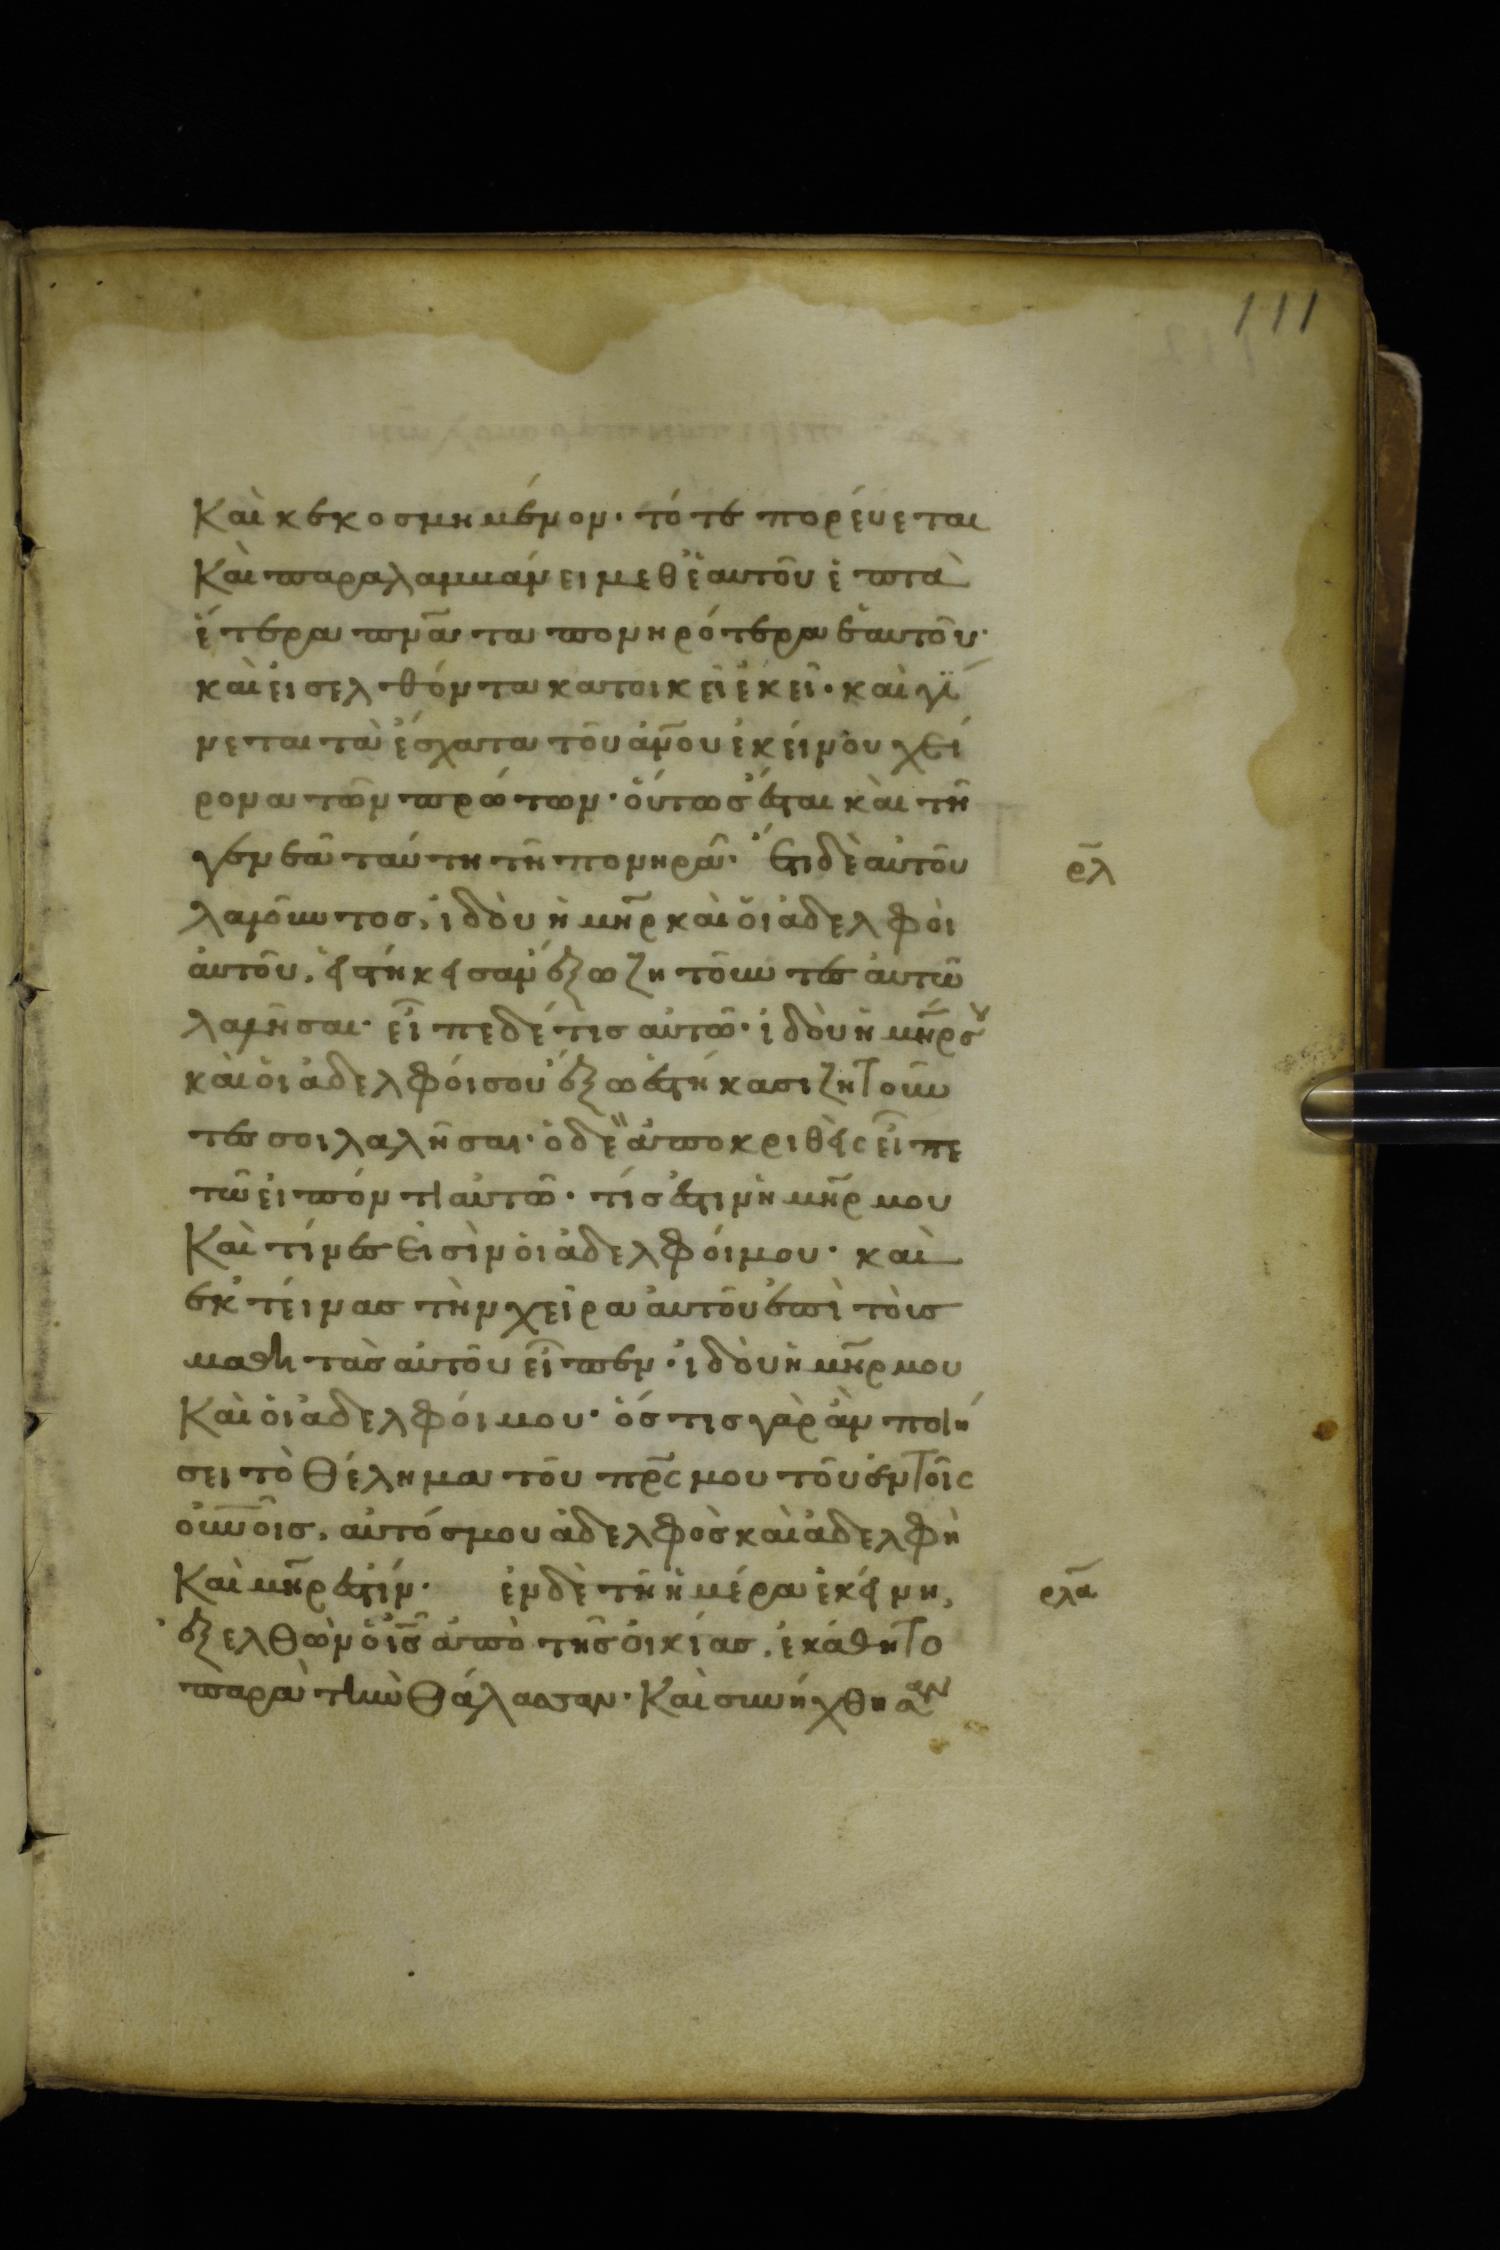 111
Καὶ κεκοσμημένον· τότε πορεύεται
Καὶ παραλαμβάνει μεθ ἑαυτοῦ ἑπτὰ
ἕτερα πν̅α̅τα πονηρότερα ἑαυτοῦ·
καὶ εἰσελθόντα κατοικεῖ ἐκεῖ· καὶ γί
νεται τὰ ἔσχατα τοῦ ἀν̅ο̅υ ἐκείνου χεί
ρονα τῶν πρώτων· οὕτως ἔσται καὶ τῆ
γενεᾶ ταύτη τῆ πονηρᾶ· Ἔτι δὲ αὐτοῦ
ρ̅λ̅
λαλοῦντος, ἰδοὺ ἡ μ̅η̅ρ καὶ οἱ ἀδελφοὶ
ἀυτοῦ, εἱστήκεισαν ἔξω ζητοῦντες ἀυτῶ
λαλῆσαι· εἶπε δέ τις αὐτῶ· ἰδοὺ ἡ μ̅η̅ρ σου
καὶ οἱ ἀδελφόι σου ἔξω ἑστήκασι ζητοῦν
τές σοι λαλῆσαι· ὁ δὲ ἀποκριθεὶς εἶπε
τῶ εἰπόντι αὐτῶ· τίς ἐστιν ἡ μ̅η̅ρ μου
Καὶ τίνες εἰσὶν οἱ ἀδελφόι μου· καὶ
ἐκτείνας τὴν χεῖρα ἀυτοῦ ἐπὶ τοὺς
μαθητὰς αὐτοῦ εἶπεν· ἰδοὺ ἡ μ̅η̅ρ μου
Καὶ οἱ ἀδελφόι μου· ὅστις γὰρ ἂν ποιή
σει τὸ θέλημα τοῦ π̅ρ̅ς μου τοῦ ἐν τοῖς
οὐ̅ν̅οῖς, αὐτός μου ἀδελφὸς καὶ ἀδελφὴ
Καὶ μ̅η̅ρ ἐστίν· ἐν δὲ τῆ ἡμέρα ἐκείνη,
ρ̅λ̅α̅
ἐξελθὼν ὁ ι̅ς̅ ἀπὸ τῆς οἰκίας, ἐκάθητο
παρὰ τὴν θάλασσαν· Καὶ συνήχθησαν